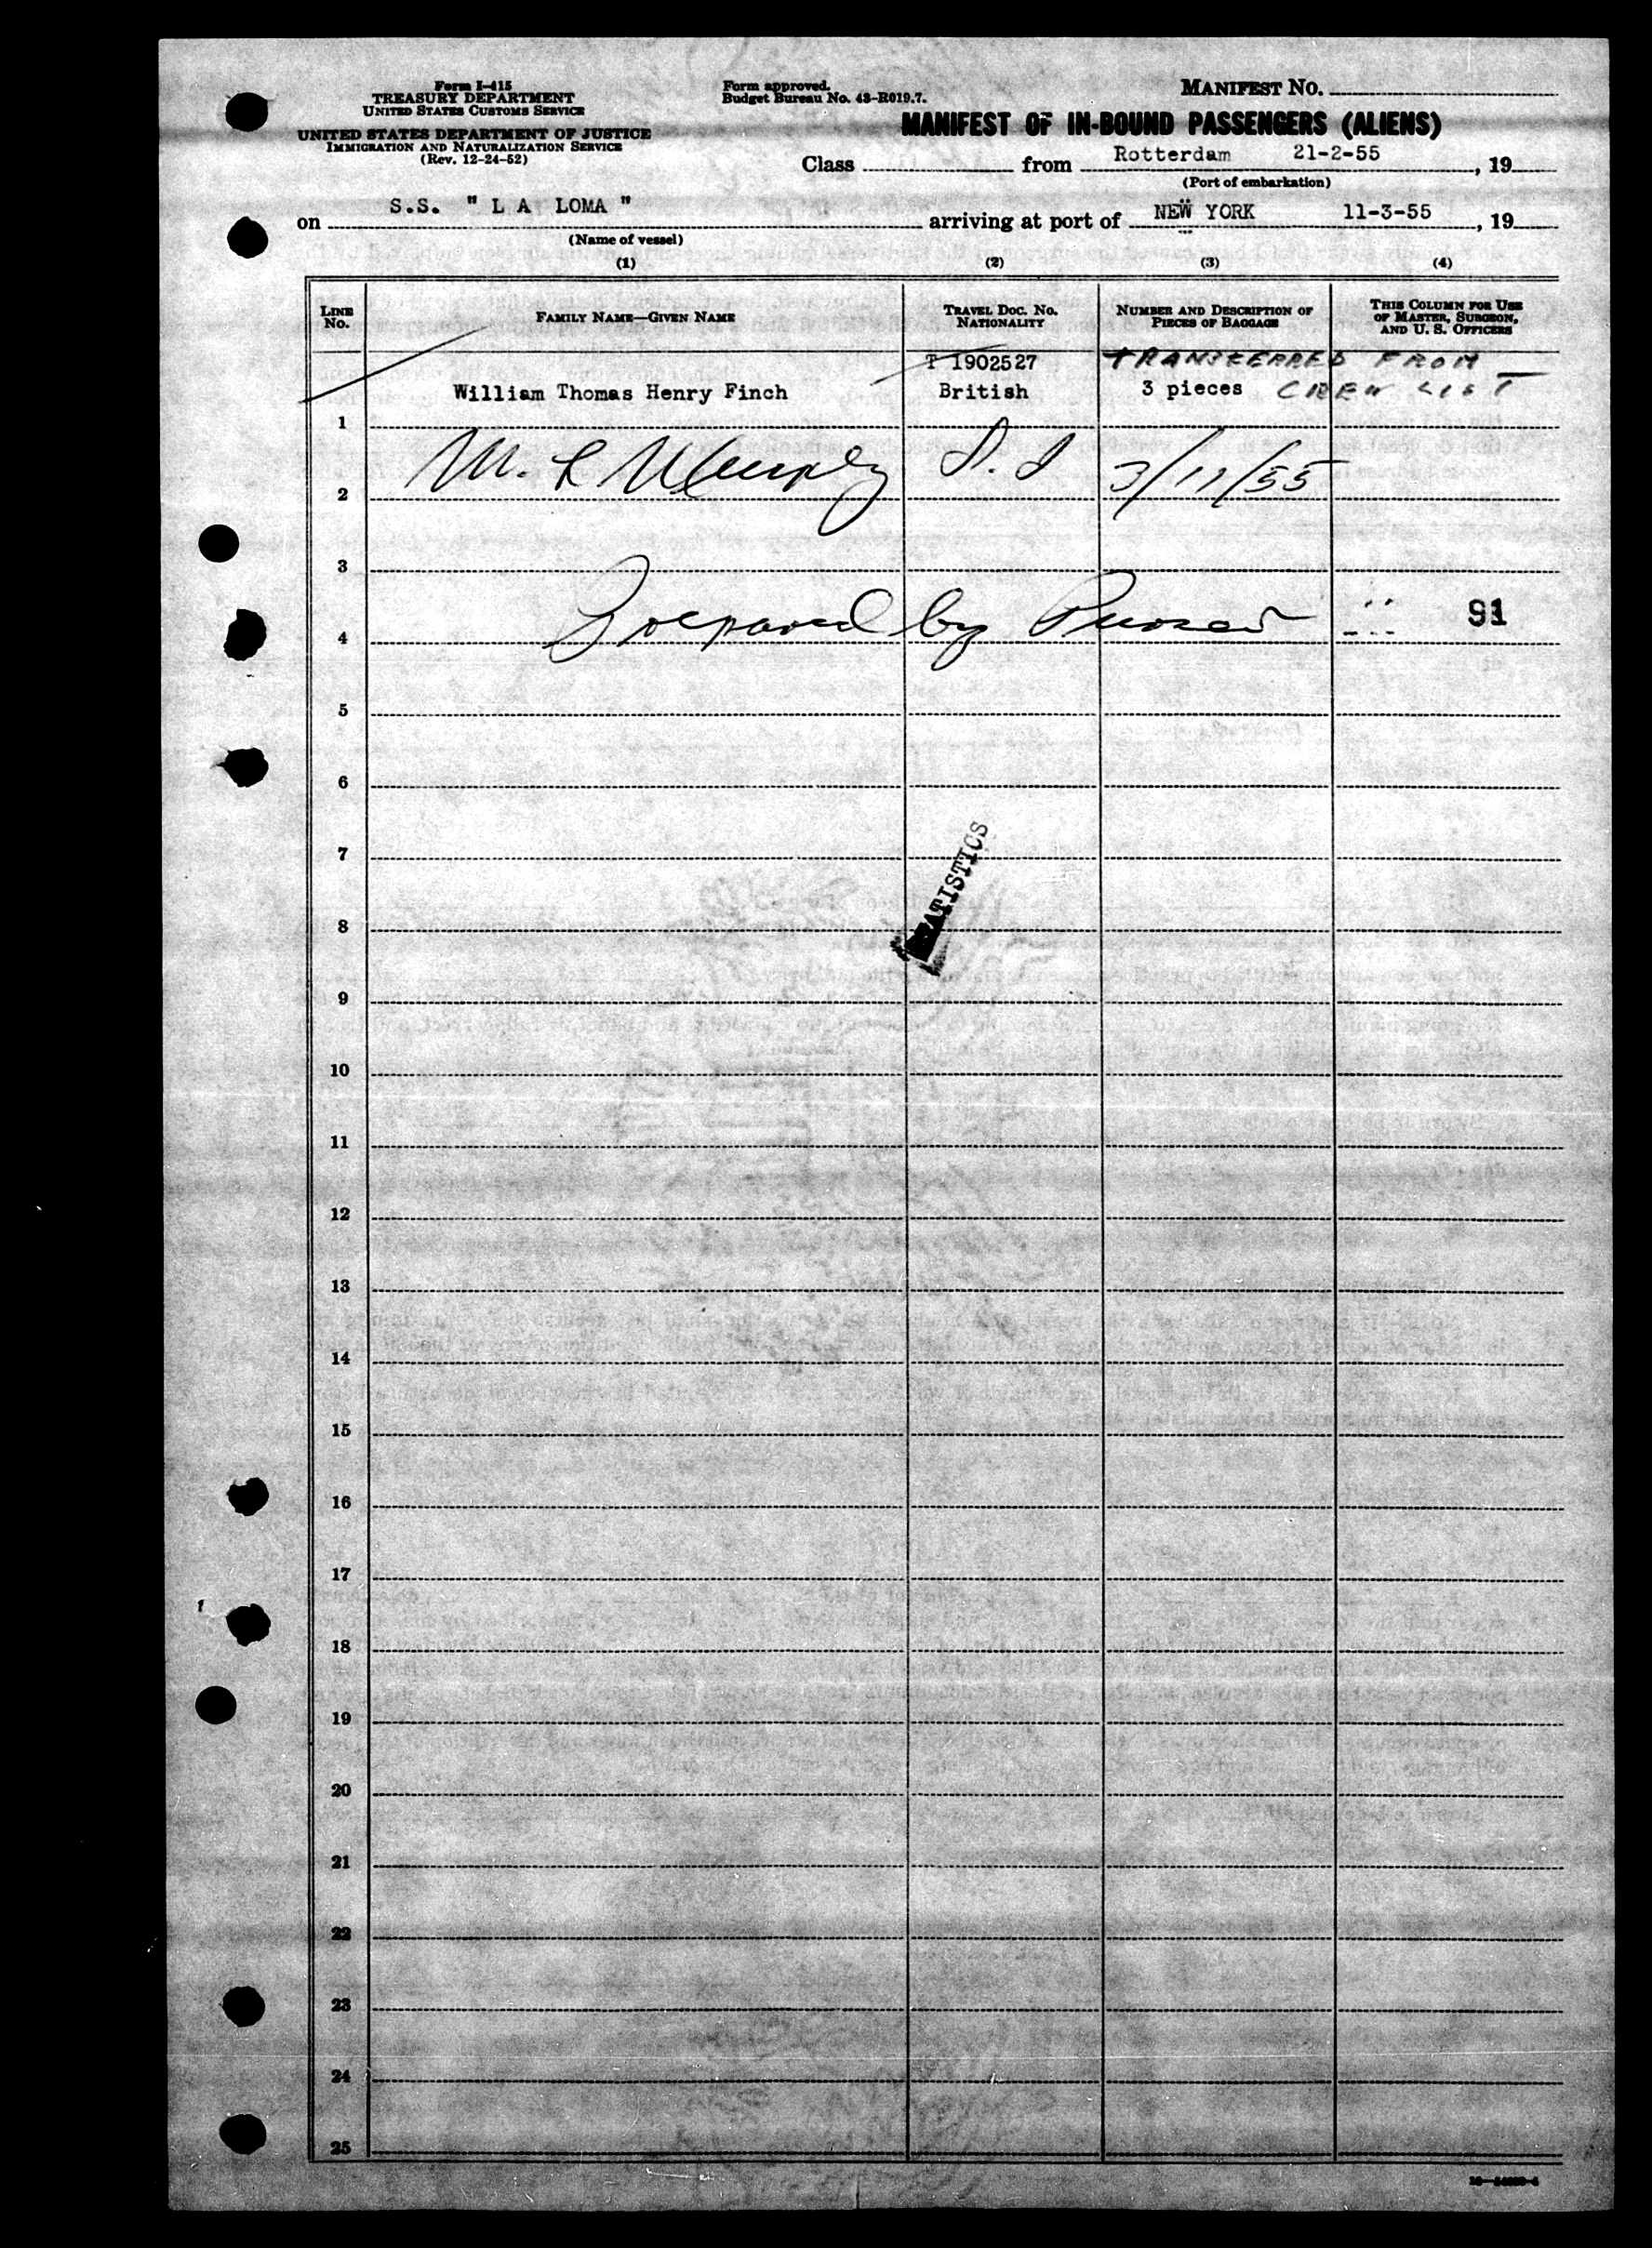 Form I-415
TREASURY DEPARTMENT
UNITED STATES CUSTOMS SERVICE
UNITED STATES DEPARTMENT OF JUSTICE
IMMIGRATION AND NATURALIZATION SERVICE
(Rev. 12-24-52)
Form approved.
Budget Bureau No. 43-R019.7.
MANIFEST NO.
MANIFEST OF IN-BOUND PASSENGERS (ALIENS)
Class from Rotterdam 21-2-55, 19
(Port of embarkation)
on S.S. " L A LOMA " arriving at port of NEW YORK 11-3-55, 19
(Name of vessel)
(1) (2) (3) (4)
LINE NO. FAMILY NAME—GIVEN NAME TRAVEL DOC. NO. NATIONALITY NUMBER AND DESCRIPTION OF PIECES OF BAGGAGE THIS COLUMN FOR USE OF MASTER, SURGEON, AND U. S. OFFICERS
P 1902527 TRANSFERRED FROM
William Thomas Henry Finch British 3 pieces CREW LIST
1
M. L 3/11/55
2
3
Prepared by Purser 91
4
5
6
7
STATISTICS
8
9
10
11
12
13
14
15
16
17
18
19
20
21
22
23
24
25